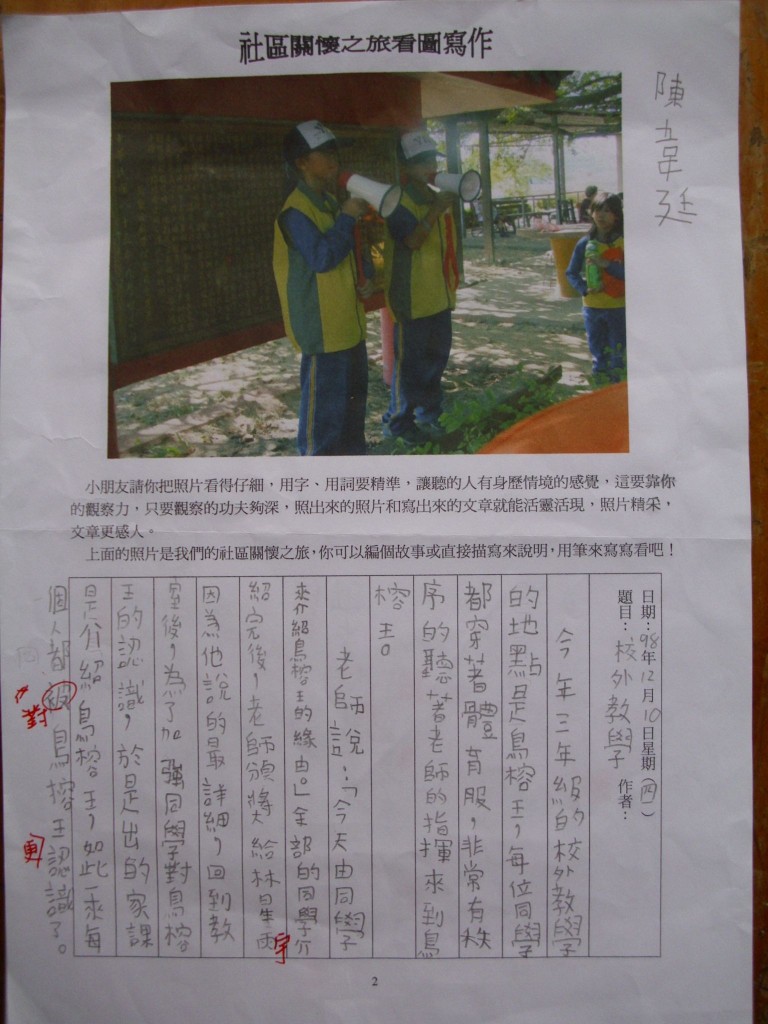 社區關懷之旅看圖寫作
陳韋廷
小朋友請你把照片看得仔細，用字、用詞要精準，讓聽的人有身歷情境的感覺，這要靠你
的觀察力，只要觀察的功夫夠深，照出來的照片和寫出來的文章就能活靈活現，照片精采，
文章更感人。
上面的照片是我們的社區關懷之旅，你可以編個故事或直接描寫來說明，用筆來寫寫看吧！
日期：98年12月10日星期（四）
題目：校外教學 作者：
今年三年級的校外教學
的地點是鳥榕王，每位同學
都穿著體育服，非常有秩
序的聽著老師的指揮來到鳥
榕王。
老師說：「今天由同學
來介紹鳥榕王的緣由。」全部的同學介
紹完後，老師頒獎給林星雨
宇
因為他說的最詳細，回到教
室後，為了加強同學對鳥榕
王的認識，於是出的家課
是介紹鳥榕王，如此一來每
個人都級鳥榕王認識了。
對
更
2